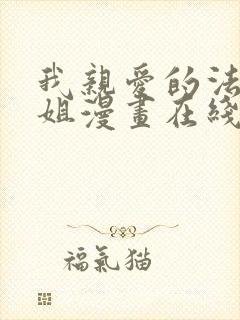 我親愛的法
姐漫畫在綫
福氣猫